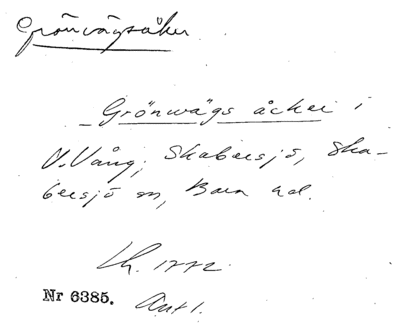 Grönvägsåker
Grönwägs åcker i
V. Vång, Skabersjö, Ska-
bersjö sn, Bara hd.
Lh. 1772.
Nr 6385. Akt 1.